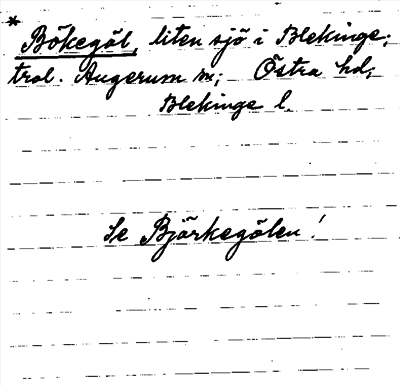 * Bökegöl, liten sjö i Blekinge;
trol. Augerum sn; Östra hd,
Blekinge l.
Se Björkegölen!